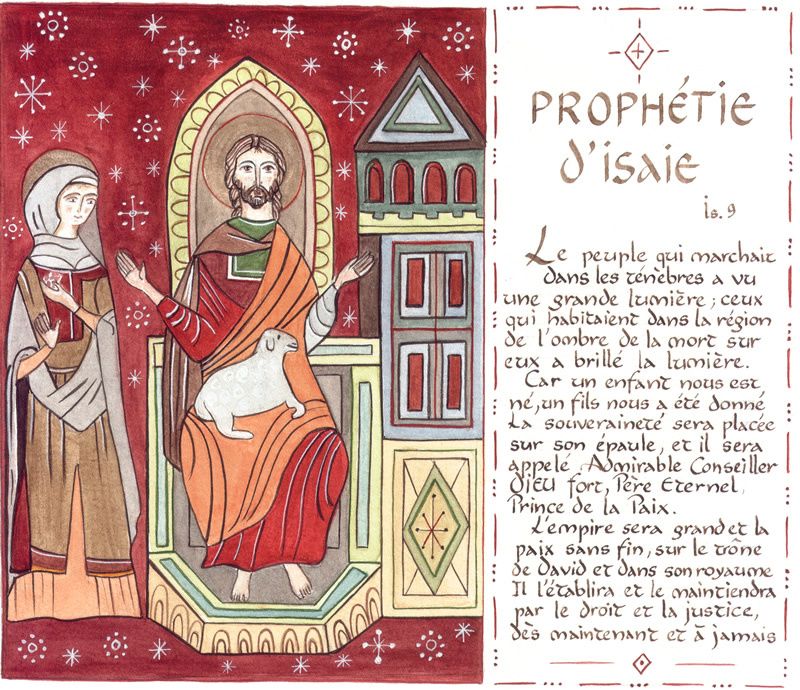 PROPHÉTIE
d'isaie
is. 9
Le peuple qui marchait
dans les ténèbres a vu
une grande lumière ; ceux
qui habitaient dans la région
de l'ombre de la mort sur
eux a brillé la lumière.
Car un enfant nous est
né, un fils nous a été donné
La souveraineté sera placée
sur son épaule, et il sera
appelé Admirable Conseiller
DIEU fort, Père Eternel,
Prince de la Paix.
L'empire sera grand et la
paix sans fin, sur le trône
de David et dans son royaume
Il l'établira et le maintiendra
par le droit et la justice,
dès maintenant et à jamais